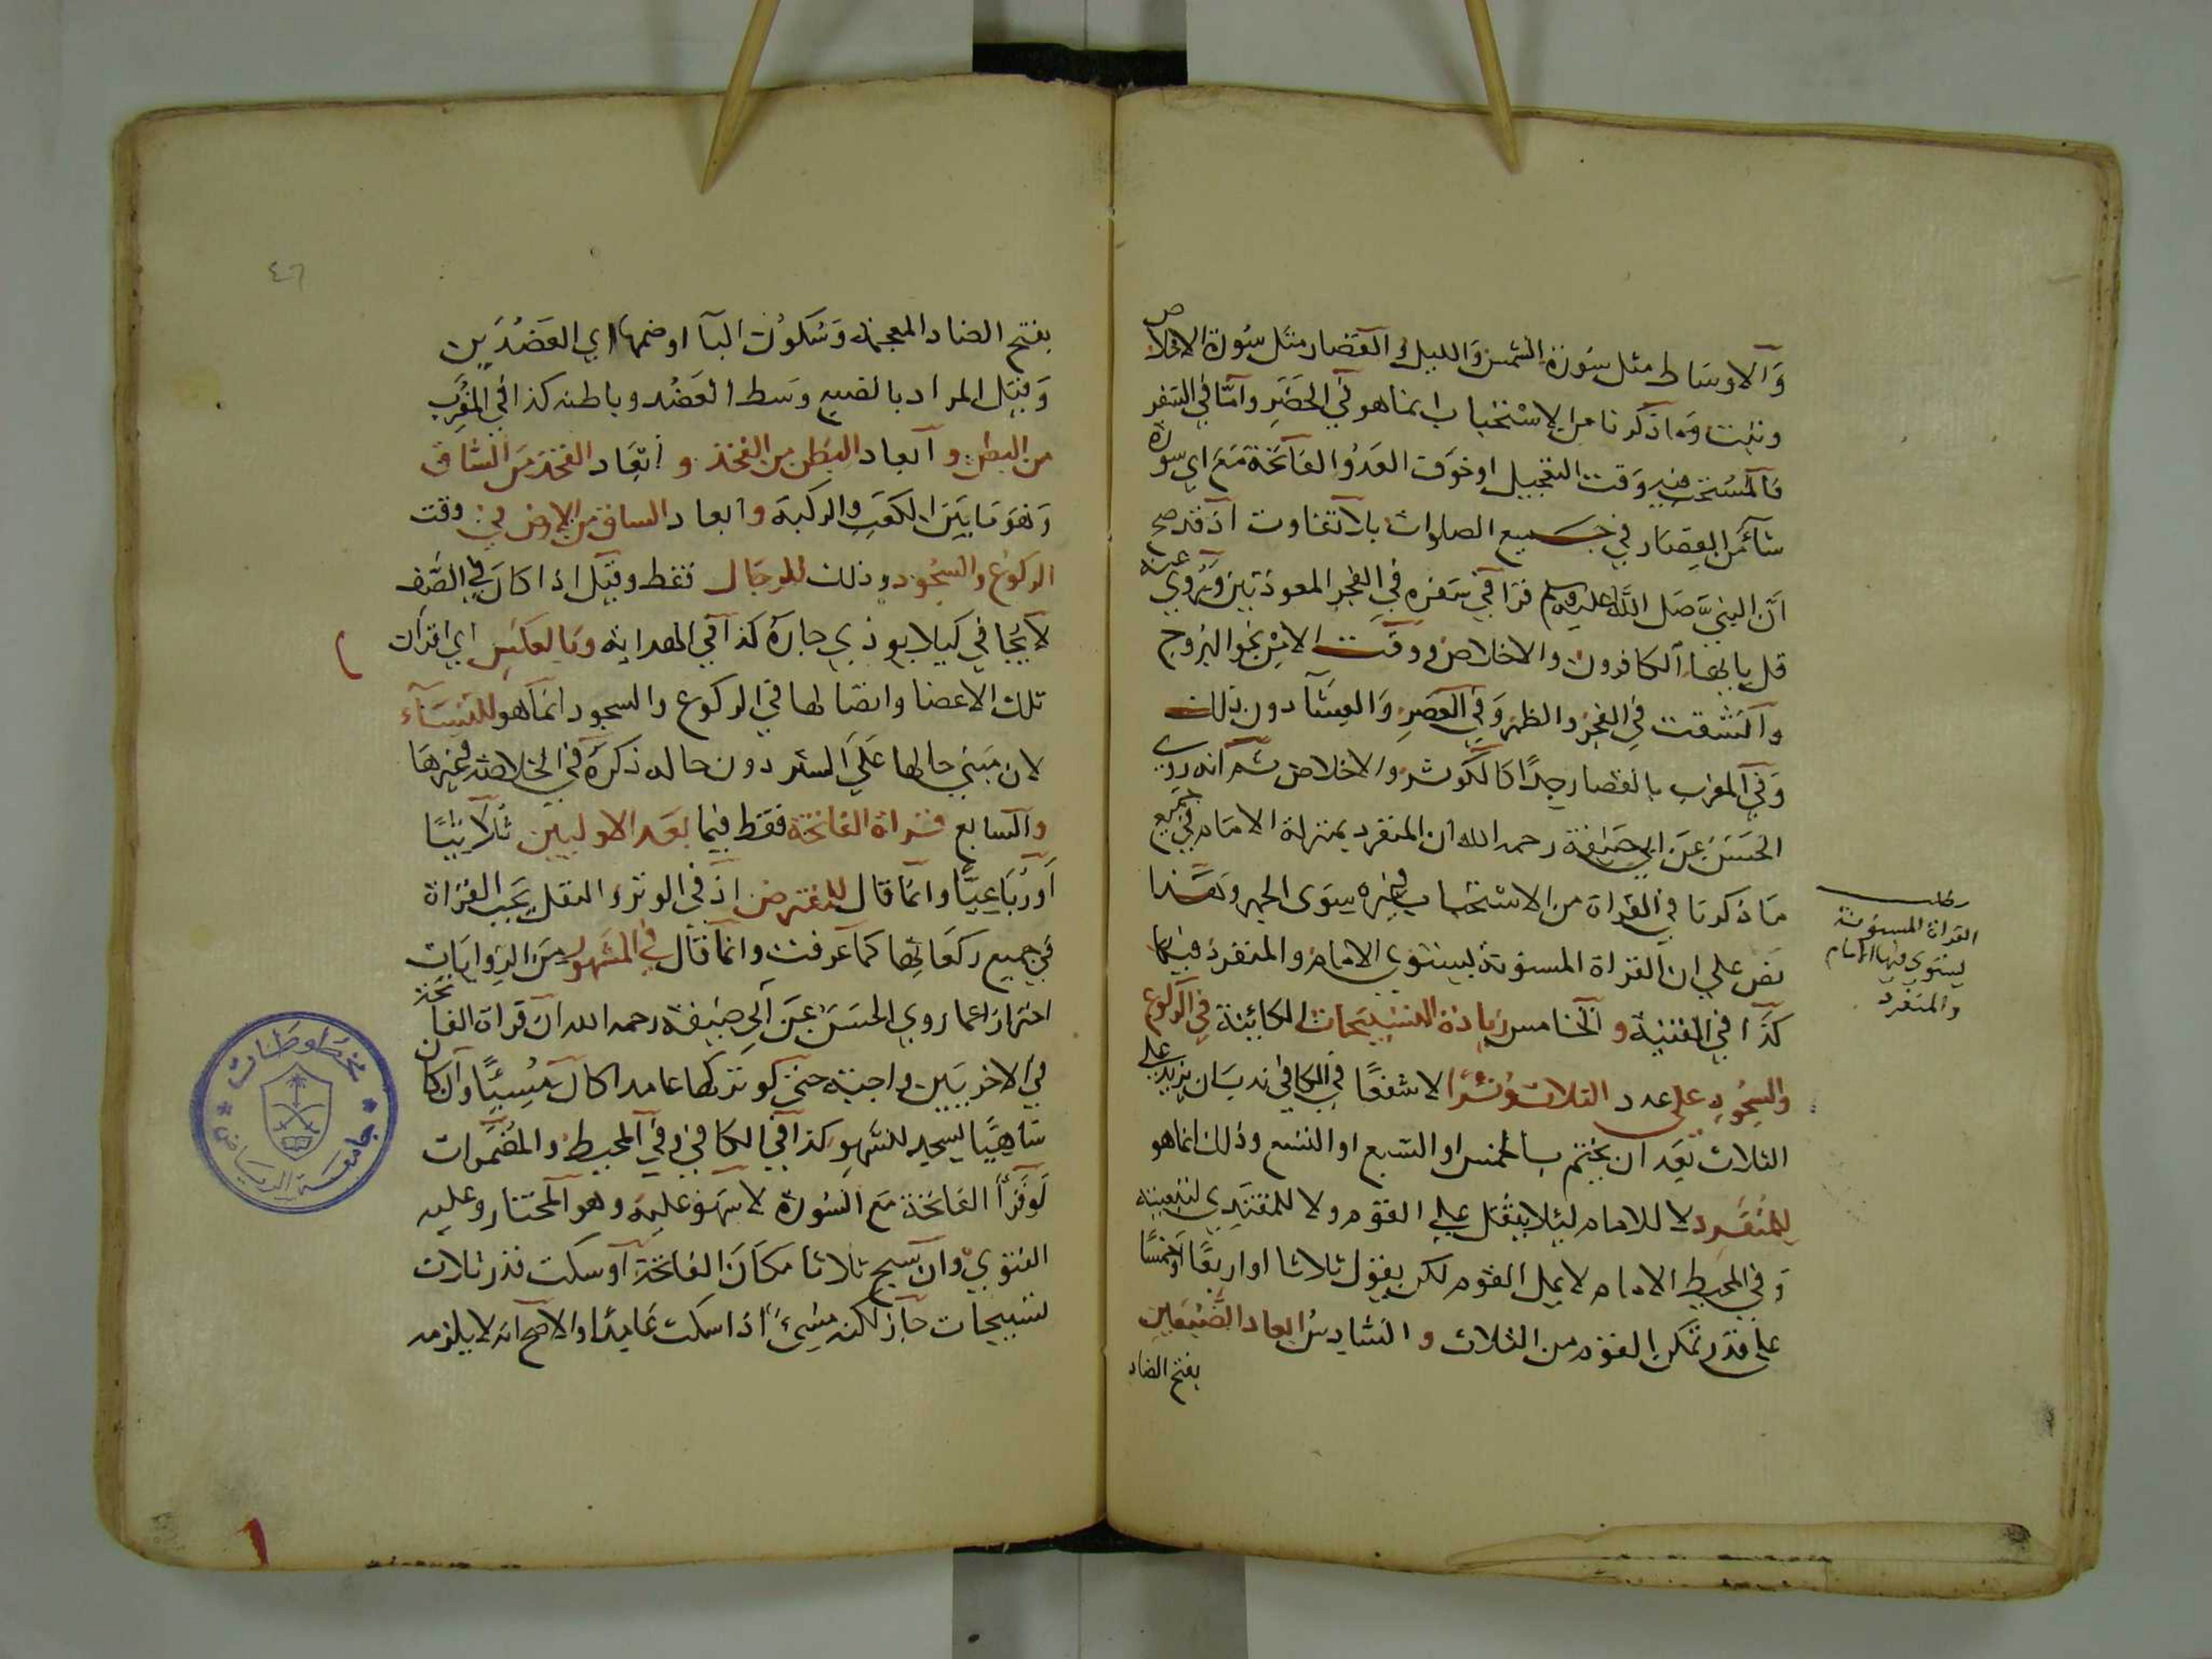 والاوساط مثل سورة الشمس والليل والقصار مثل سورة الاخلاص
وتبت وما ذكرنا من الاستحباب انما هو في الحضر واما في السفر
فالمستحب فيه وقت التعجيل او خوف العدو الفاتحة مع اي سورة
شآء من القصار في جميع الصلوات بلا تفاوت اذ قد صح
ان النبي صلى الله عليه وسلم قرا في سفره في الفجر المعوذتين وروي عنه
قل يا ايها الكافرون والاخلاص ووقت الامن نحو البروج
وانشقت في الفجر والظهر وفي العصر والعشآ دون ذلك
وفي المغرب بالقصار جدا كالكوثر والاخلاص ثم انه روي
الحسن عن ابي حنيفة رحمه الله ان المنفرد بمنزلة الامام في جميع
ما ذكرنا في القراة من الاستحباب وغيره سوى الجهر وهذا
نص على ان القراة المسنونة يستوي الامام والمنفرد فيها
كذا في القنية والخامس زيادة التسبيحات الكائنة في الركوع
والسجود على عدد الثلاث وترا لا شفعا في الكافي ندب ان يزيد على
الثلاث بعد ان يختم بالخمس او السبع او التسع وذلك انما هو
للمنفرد لا للامام ليلا يثقل على القوم ولا للمقتدي لتبعيته
وفي المحيط الامام لا يمل القوم لكن يقول ثلاثا او اربعا او خمسا
على قدر تمكن القوم من الثلاث والسادس ابعاد الضبعين
بفتح الضاد
القراة المسنونة
يستوي فيها الامام
والمنفرد
٤٦
بفتح الضاد المعجمة وسكون البآ او ضمها اي العضدين
وقيل المراد بالضبع وسط العضد وباطنه كذا في المغرب
من البطن وابعاد البطن من الفخذ وابعاد الفخذ من الساق
وهو ما بين الكعب والركبة وابعاد الساق من الارض في وقت
الركوع والسجود وذلك للرجال فقط وقيل اذا كان في الصف
لا يجافي كيلا يوذي جاره كذا في الهداية وبالعكس اي اقران
تلك الاعضا واتصالها في الركوع والسجود انما هو للنسآء
لان مبنى حالها على الستر دون حاله ذكره في الخلاصة وغيرها
والسابع قراة الفاتحة فقط فيما بعد الاوليين ثلاثيا
او رباعيا وانما قال للمفترض اذ في الوتر والنفل يجب القراة
في جميع ركعاتها كما عرفت وانما قال في المشهور من الروايات
احترازا عما روي الحسن عن ابي حنيفة رحمه الله ان قراة الفاتحة
في الاخريين واجبة حتى لو تركها عامدا كان مسيئا وان كان
ساهيا يسجد للسهو كذا في الكافي وفي المحيط والمضمرات
لو قرأ الفاتحة مع السورة لا سهو عليه وهو المختار وعليه
الفتوي وان سبح ثلاثا مكان الفاتحة او سكت قدر ثلاث
تسبيحات جاز لكنه مسيئ اذا سكت عامدا والاصح انه لا يلزمه
مخطوطات
جامعة الرياض